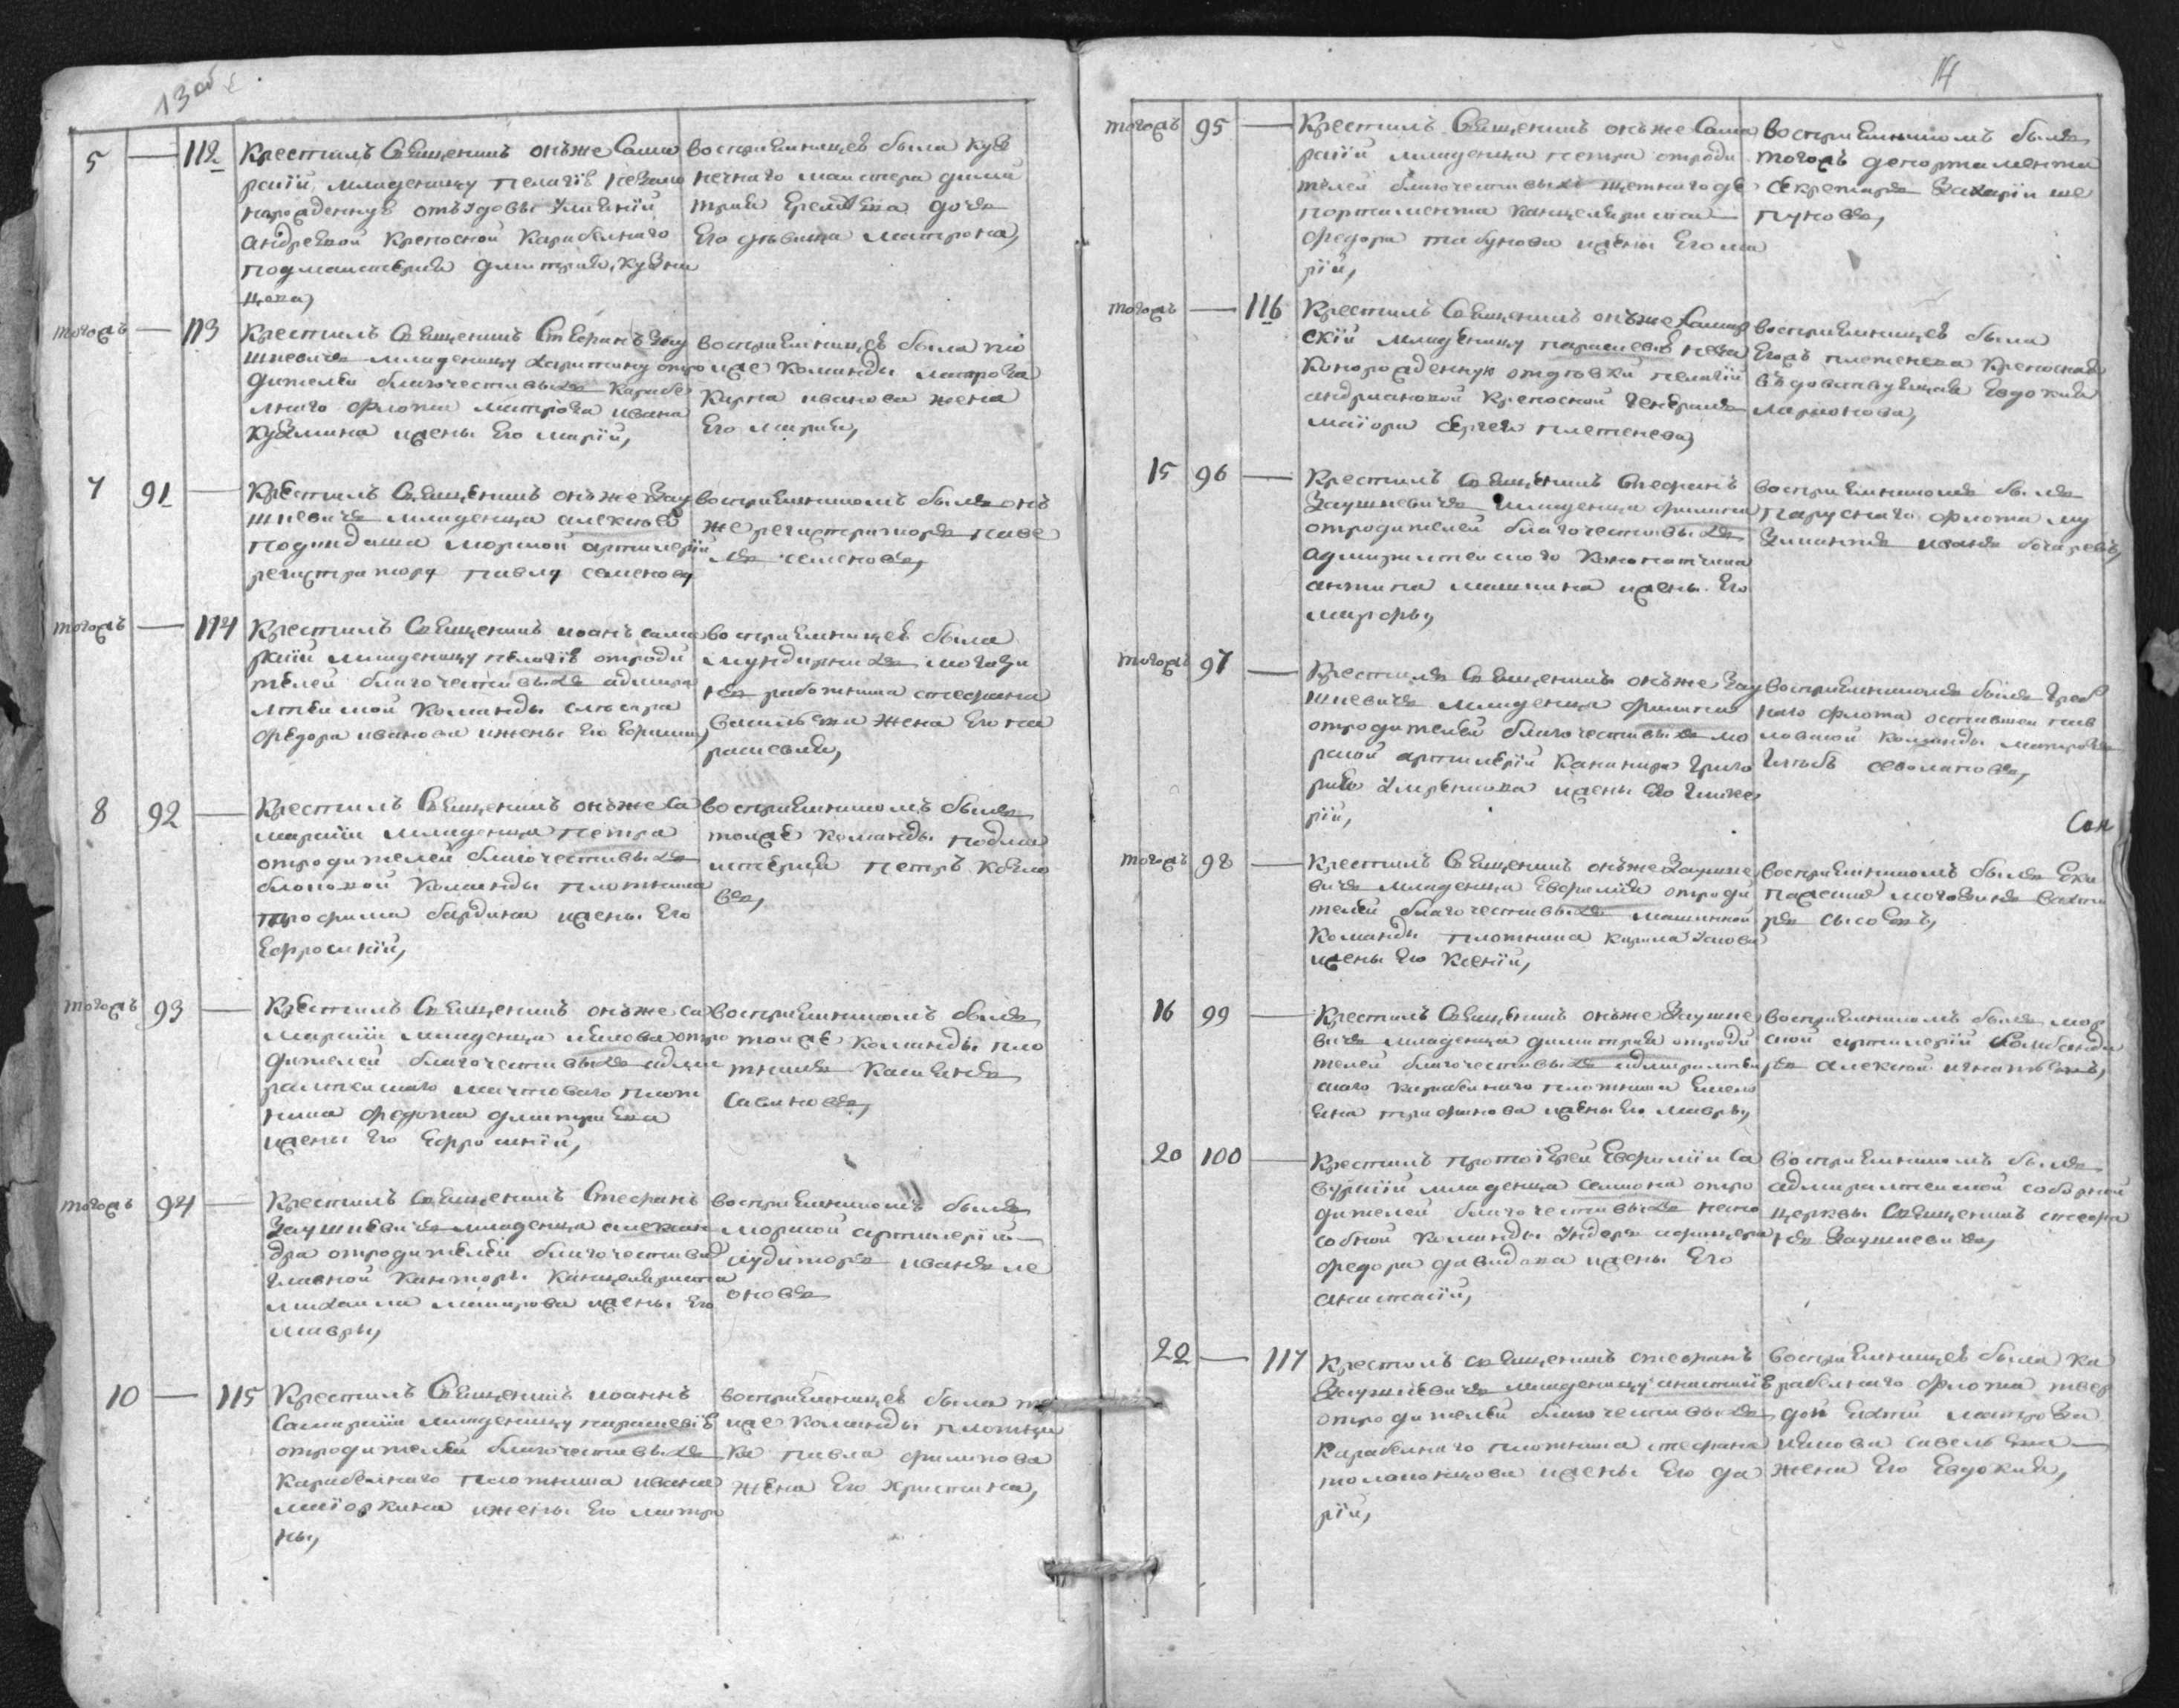 13 об
5 — 112 Крестилъ Священникъ онъже Сама
рскій, младеницу пелагїю незако
норожденную отъ вдовы
андреевой Крепосной Карабелнаго
подмастерья дмитрия, Кузне
цова,
восприемницею была Куз
нечнаго маистера дми
трия дочь
его девица матрона,
тогожъ — 113 Крестилъ Священникъ Стефанъ Зау
шкевичъ младеницу харитину отро
дителей благочестивыхъ Карабе
лнаго флота матроза ивана
Кузмина ижены Его Марїи,
восприемницею была тоя
же Команды матроза
Карпа иванова жена
Его Мария,
7 91 — Крестилъ Священникъ онъже Зау
шкевичъ младенца алексея
подкидыша морской артилерїи
регистратору павлу семенову
восприемникомъ былъ онъ
же регистраторъ паве
лъ семеновъ,
тогожъ — 114 Крестилъ Священникъ иоанъ сама
рскїи младеницу пелагїю отроди
телей благочестивыхъ адмира
лтейской Команды слесаря
федора иванова ижены Его
восприемницею была
мундирныхъ магази
нъ работника стефана
васильева жена Его па
расковья,
8 92 — Крестилъ Священникъ онъже Са
марскїи младенца петра
отродителей благочестивыхъ
блоковой Команды плотника
трофима бардина ижены Его
Ефросинїи,
восприемникомъ былъ
тояже Команды подма
стерья петръ
въ,
тогожъ 93 — Крестилъ Священникъ онъже Са
марскїи младенца иякова отро
дителей благочестивыхъ адми
ралтейскаго мачтоваго плот
ника федота дмитриева
ижены Его Ефросинїи,
восприемникомъ былъ
тояже Команды пло
тникъ Касиянъ
Савиновъ,
тогожъ 94 — Крестилъ Священникъ Стефанъ
Заушкевичъ младенца алексан
дра отродителей благочестивыхъ
Главной Канторы Канцеляриста
михаила ижены Его
мавры,
восприемникомъ былъ
морской артилерїи
аудиторъ иванъ ле
оновъ
10 — 115 Крестилъ Священникъ иоаннъ
Самарскїи младеницу парасковїю
отродителей благочестивыхъ
Карабелнаго плотника ивана
маїоркина ижены Его матро
ны,
восприемницею была то
яже Команды плотни
ка павла филипова
жена Его христина,
14
тогожъ 95 — Крестилъ Священникъ онъже Сама
рскїй младенца петра отроди
телей благочестивыхъ щетнаго де
портамента Канцеляриста
федора табунова ижены Его ма
рїи,
восприемникомъ былъ
тогожъ депортамента
Секретарь Захарїи ше
пуновъ,
тогожъ — 116 Крестилъ Священникъ онъже Самар
скїй младеницу парасковїю неза
конорожденную отдевки пелагїи
андриановой Крепосной Генералъ
маїора Сергея плетенева,
восприемницею была
Егожъ плетенева Крепосная
вдовствующая Евдокия
ларионова,
15 96 — Крестилъ Священникъ Стефанъ
Заушкевичъ младенца филипа
отродителей благочестивыхъ
адмиралтейского Конопатчика
антипа машкина ижены Его
марфы,
восприемникомъ былъ
паруснаго флота му
зыкантъ иванъ бочаревъ,
тогожъ 97 — Крестилъ Священникъ онъже Зау
шкевичъ младенца филипа
отродителей благочестивыхъ мо
рской артилерїи Канонира Григо
рия ижены Его Глике
рїи,
восприемникомъ былъ Греб
наго флота оставшей пав
ловской Команды матрозъ
Глебъ севолаповъ,
Сен
тогожъ 98 — Крестилъ Священникъ онъже Заушке
вичъ младенца Евфимїя отроди
телей благочестивыхъ машинной
Команды плотника Кирила
ижены Его Ксенїи,
восприемникомъ былъ Еки
пажскихъ могазинъ вахте
ръ сысоевъ,
16 99 — Крестилъ Священникъ онъже Заушке
вичъ младенца димитрия отроди
телей благочестивыхъ адмиралтей
скаго Карабелнаго плотника Емель
яна трифонова ижены Его мавры,
восприемникомъ былъ мор
ской артилерїи бомбанди
ръ алексей игнатьевъ,
20 100 — Крестилъ протоїерей Евфимїи Са
вурскїй младенца симиона отро
дителей благочестивыхъ неспо
собной Команды Ундеръ афицера
федора давидова ижены Его
анастасїи,
восприемникомъ былъ
адмиралтейской соборной
церквы Священникъ стефа
нъ Заушкевичъ,
22 — 117 Крестилъ священникъ стефанъ
Заушкевичъ младеницу анастасїю
отродителей благочестивыхъ
Карабелнаго плотника стефана
толоконцова ижены Его да
рїи,
восприемницею была ка
рабелнаго флота твер
дой матроза
иякова савельева
жена Его Евдокия,